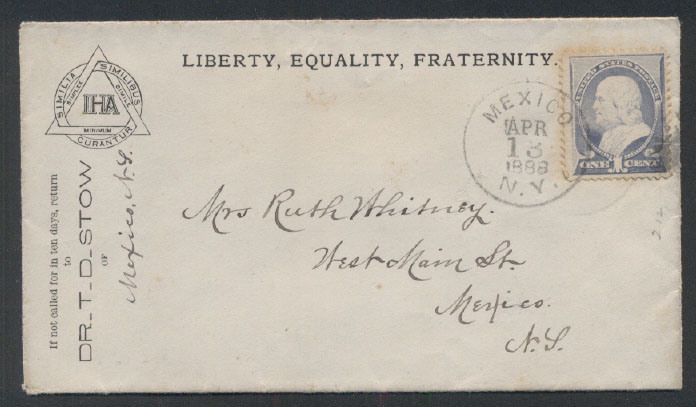 LIBERTY, EQUALITY, FRATERNITY.
SIMILIA SIMILIBUS CURANTUR
SIMPLEX SIMILE MINIMUM
IHA
If not called for in ten days, return
to
DR. T. D. STOW
OF
Mexico, N.Y.
MEXICO
APR
13
1888
N.Y.
UNITED STATES POSTAGE
ONE CENT
Mrs Ruth Whitney.
West Main St.
Mexico.
N.Y.